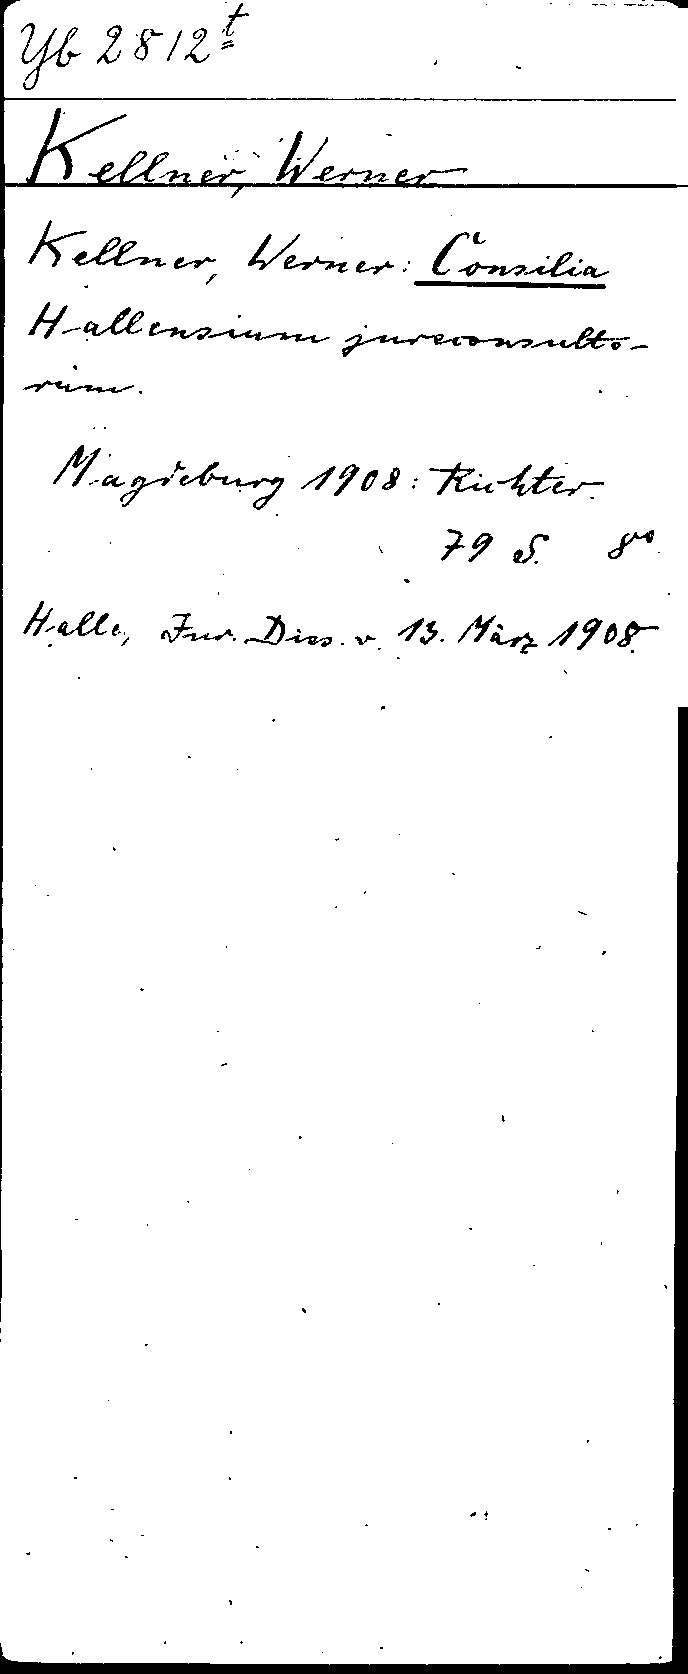 Yb 2812t
Kellner, Werner
Kellner, Werner: Consilia
Hallensium jureconsulto-
rum.
Magdeburg 1908: Richter.
79 S. 8°
Halle, Jur. Diss. v. 13. März 1908.